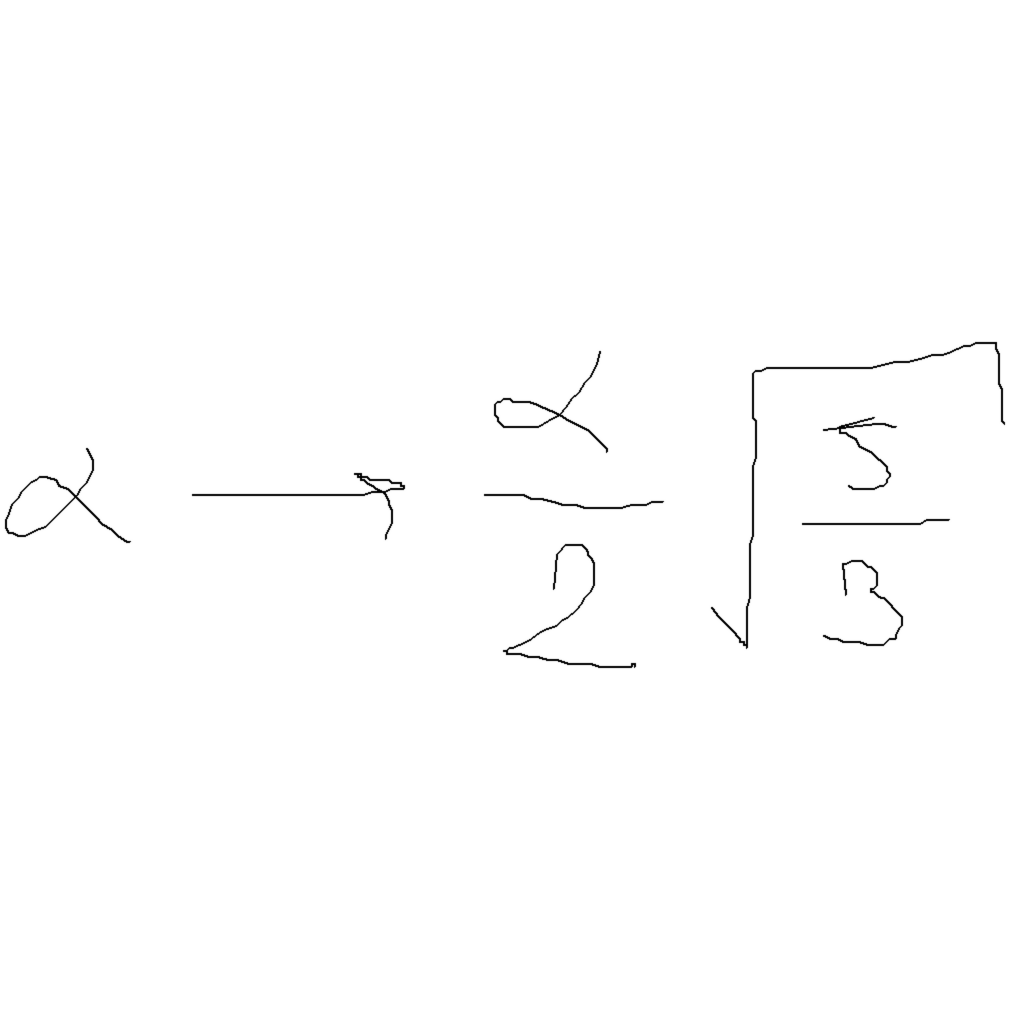 α → α/2 √(5/3)